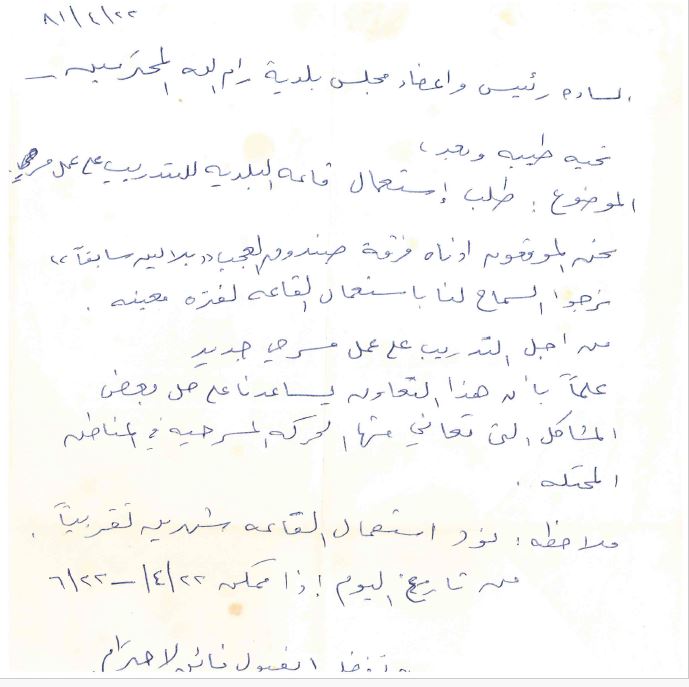 ٨١/٤/٢٢
السادة رئيس واعضاء مجلس بلدية رام الله المحترمين -
تحيه طيبه وبعد،
الموضوع : طلب إستعمال قاعه البلديه للتدريب على عمل مسرحي.
نحن الموقعون ادناه فرقة صندوق العجب "بلالين سابقاً"
نرجوا السماح لنا باستعمال القاعه لفتره معينه .
من اجل التدريب على عمل مسرحي جديد
علماً بأن هذا التعاون يساعدنا على حل بعض
المشاكل التي تعاني منها الحركه المسرحيه في المناطق
المحتله .
ملاحظه : نود استعمال القاعه شهرين تقريباً .
من تاريخ اليوم إذا ممكن ٤/٢٢ - ٦/٢٢
وتفضلوا بقبول فائق الاحترام